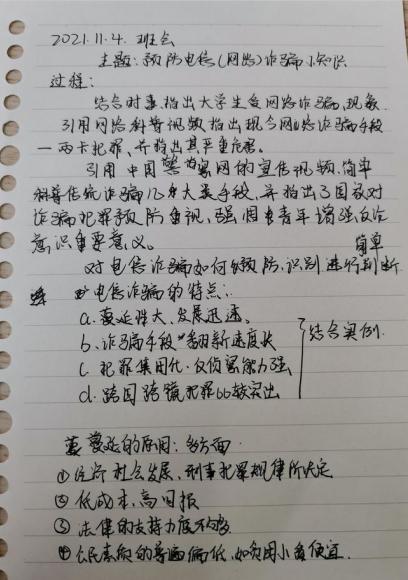 2021.11.4. 班会
主题：预防电信(网络)诈骗小知识
过程：
结合时事，指出大学生受网络诈骗现象
引用网络科普视频指出现今网络诈骗手段
一两卡犯罪、并指出其严重危害。
引用中国警察网的宣传视频，简单
科普传统诈骗几大类手段，并指出了国家对
诈骗犯罪预防重视，强调青年增强自治
意识重要意义。
对电信诈骗如何预防、识别进行简单判断
电信诈骗的特点：
a. 蔓延性大、发展迅速。
b. 诈骗手段翻新速度快
c. 犯罪集团化、反侦察能力强
d. 跨国跨境犯罪比较突出
结合实例.
蔓延的原因：多方面
①经济社会发展，刑事犯罪规律所决定
②低成本，高回报
③法律的支持力度不够
④公民素质的普遍偏低，如贪图小多便宜.